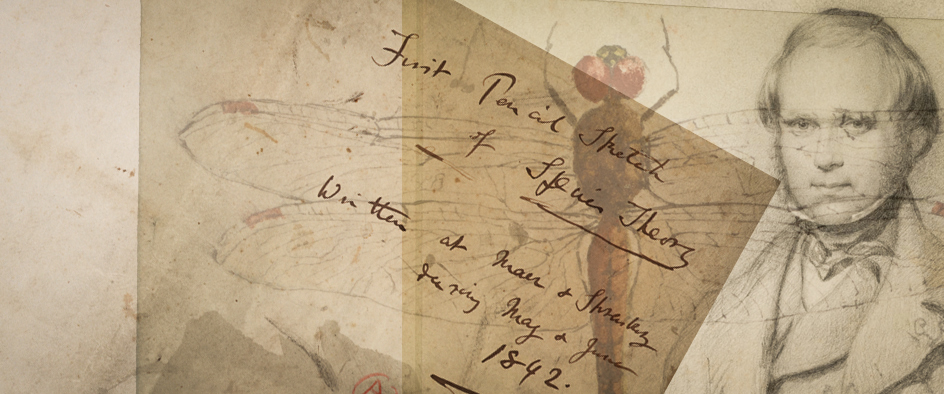 First
Pencil Sketch
of
Species Theory
Written at Maer & Shrewsbury
during May & June
1842.
A